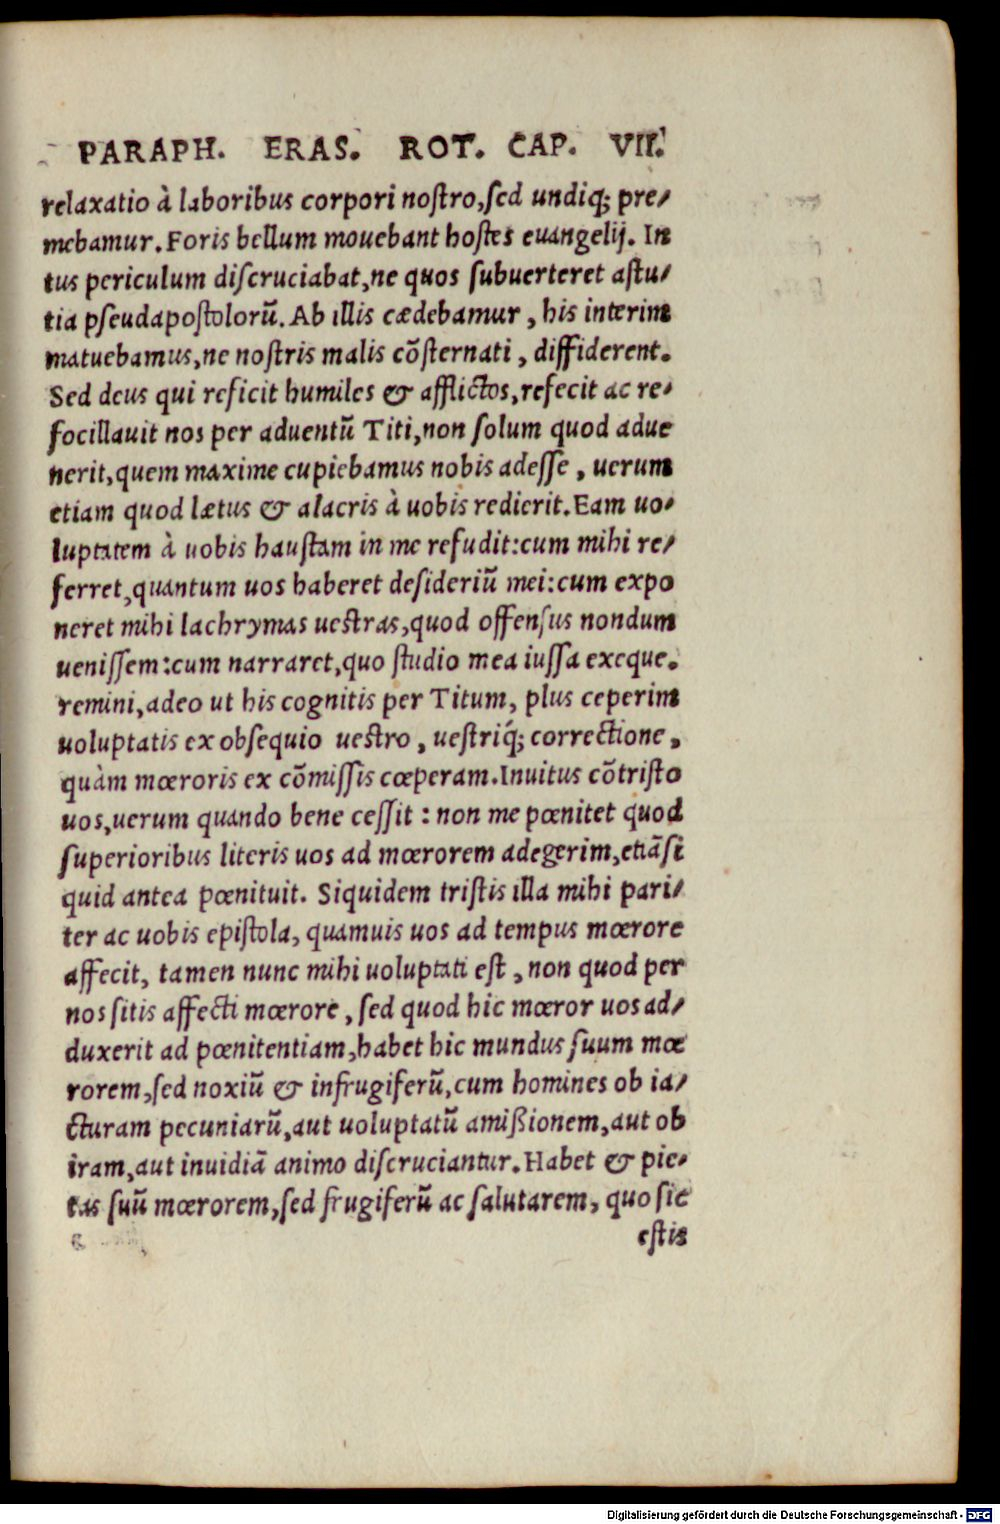 PARAPH. ERAS. ROT. CAP. VII.
relaxatio à laboribus corpori nostro,sed undiq; pre/
mebamur.Foris bellum mouebant hostes euangelij. In
tus periculum discruciabat,ne quos subuerteret astu/
tia pseudapostolorũ.Ab illis cædebamur, his interim
matuebamus,ne nostris malis cõsternati, diffiderent.
Sed deus qui reficit humiles & afflictos,refecit ac re/
focillauit nos per aduentũ Titi,non solum quod adue
nerit,quem maxime cupiebamus nobis adesse, uerum
etiam quod lætus & alacris à uobis redierit.Eam uo/
luptatem à uobis haustam in me refudit:cum mihi re/
ferret,quantum uos haberet desideriũ mei:cum expo
neret mihi lachrymas uestras,quod offensus nondum
uenissem:cum narraret,quo studio mea iussa exeque.
remini,adeo ut his cognitis per Titum, plus ceperim
uoluptatis ex obsequio uestro, uestriq́; correctione,
quàm mœroris ex cõmissis cœperam.Inuitus cõtristo
uos,uerum quando bene cessit: non me pœnitet quod
superioribus literis uos ad mœrorem adegerim,etiãsi
quid antea pœnituit. Siquidem tristis illa mihi pari/
ter ac uobis epistola, quamuis uos ad tempus mœrore
affecit, tamen nunc mihi uoluptati est, non quod per
nos sitis affecti mœrore, sed quod hic mœror uos ad/
duxerit ad pœnitentiam,habet hic mundus suum mœ
rorem,sed noxiũ & infrugiferũ,cum homines ob ia/
cturam pecuniarũ,aut uoluptatũ amißionem,aut ob
iram,aut inuidiã animo discruciantur.Habet & pie/
tas suũ mœrorem,sed frugiferũ ac salutarem, quo sic
estis
Digitalisierung gefördert durch die Deutsche Forschungsgemeinschaft - DFG